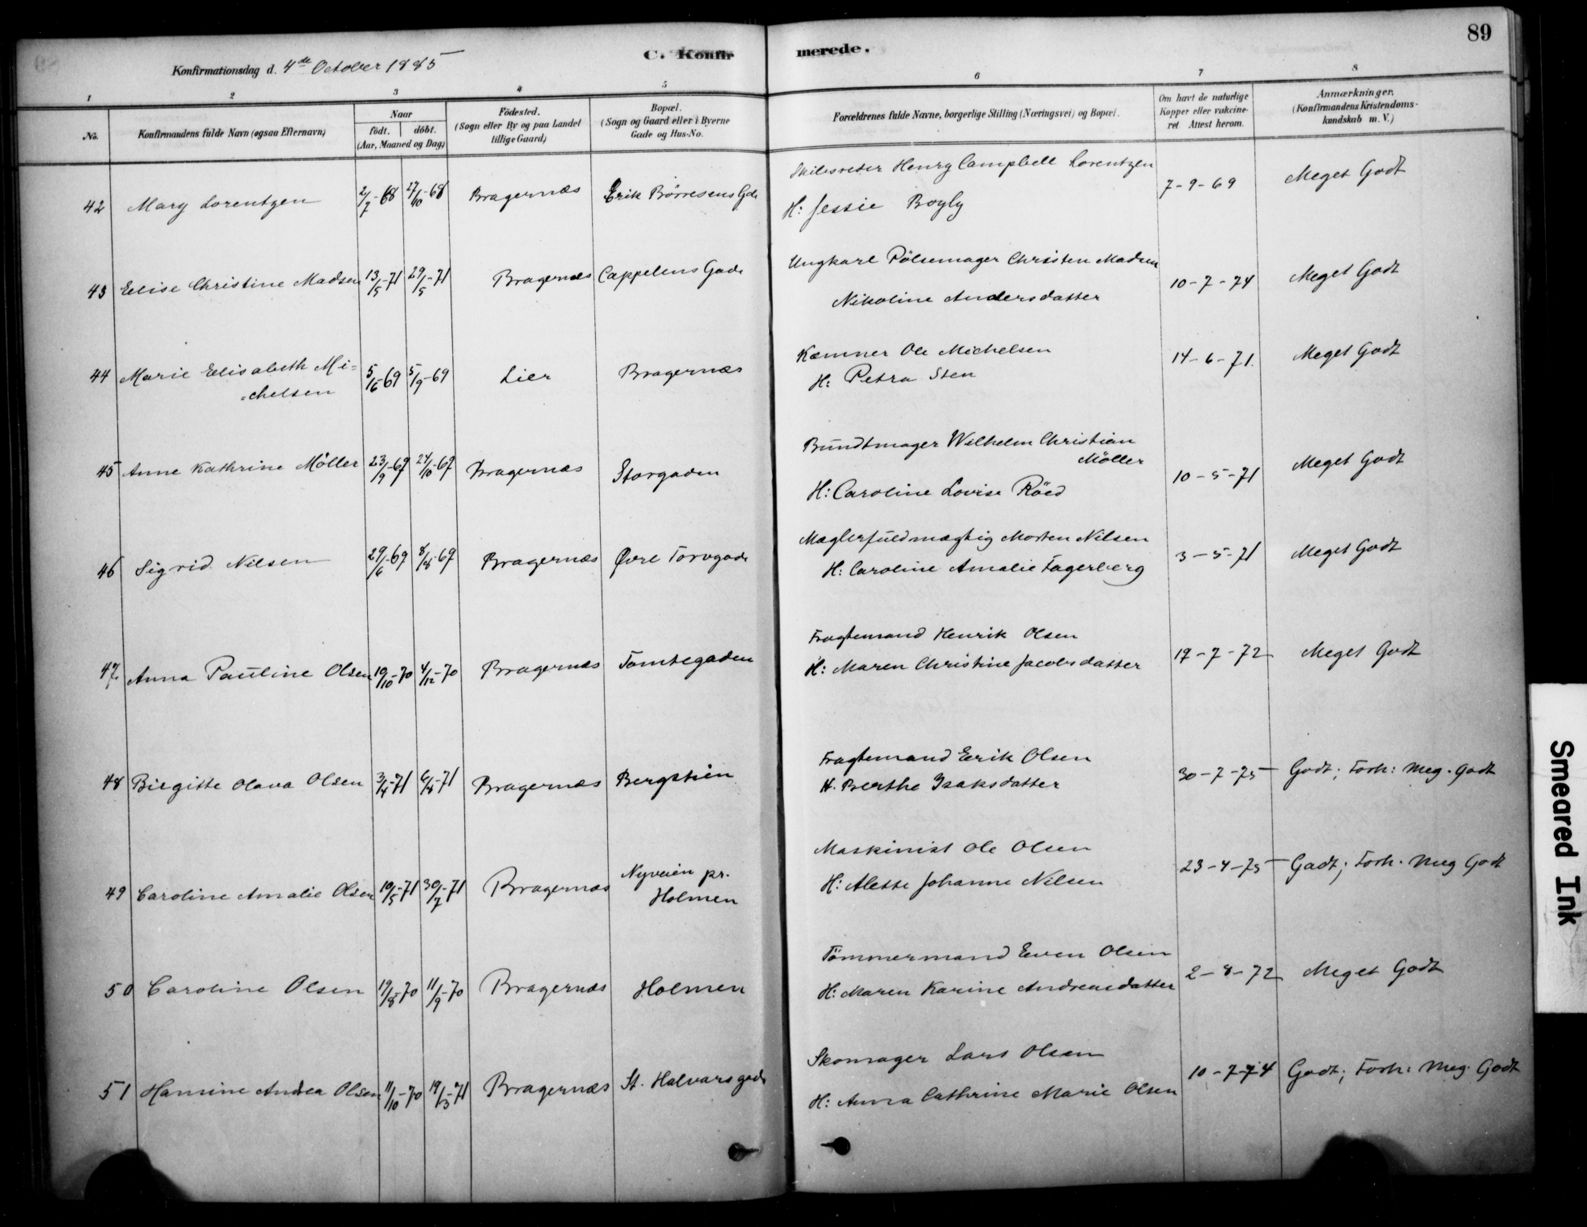 89
C. Konfirmerede.
Konfirmationsdag d. 4de October 1885
1 2 3 4 5 6 7 8
No.
Konfirmandens fulde Navn (ogsaa Efternavn)
Naar
født. døbt.
(Aar, Maaned og Dag)
Födested.
(Sogn eller By og paa Landet
tillige Gaard)
Bopæl.
(Sogn og Gaard eller i Byerne
Gade og Hus-No.
Forældrenes fulde Navne, borgerlige Stilling (Næringsvei) og Bopæl.
Om havt de naturlige
Kopper eller vakcine-
ret Attest herom.
Anmærkninger.
(Konfirmandens Kristendoms-
kundskab m. V.)
42 Mary Lorentzen 2/7-68 27/10-68 Bragernæs Erik Børresens Gde
Skibsreder Henry Campbell Lorentzen
H: Jessie
7-9-69 Meget Godt
43 Elise Christine Madsen 13/5-71 29/5-71 Bragernæs Cappelens Gade
Ungkarl Pölsemager Christen Madsen
Nikoline Andersdatter
10-7-74 Meget Godt
44 Marie Elisabeth Mi-
chelsen 5/6-69 5/9-69 Lier Bragernæs
Kæmner Ole Michelsen
H: Petra Sten
14-6-71. Meget Godt
45 Anne Kathrine Møller 23/9-69 24/10-69 Bragernæs Storgaden
Bundtmager Wilhelm Christian
Møller
H: Caroline Lovise Röed
10-5-71 Meget Godt
46 Sigrid Nilsen 29/6-69 8/8-69 Bragernæs Øvre Torvgade
Mæglerfuldmægtig Morten Nilsen
H: Caroline Amalie Fagerberg
3-5-71 Meget Godt
47 Anna Pauline Olsen 19/10-70 4/12-70 Bragernæs Tomtegaden
Fragtemand Henrik Olsen
H: Maren Christine Jacobsdatter
17-7-72 Meget Godt
48 Birgitte Olava Olsen 3/4-71 6/8-71 Bragernæs Bergstien
Fragtemand Erik Olsen
H. Berthe Isaksdatter
30-7-75 Godt; Forh: Meg. Godt
49 Caroline Amalie Olsen 10/5-71 30/7-71 Bragernæs Nyveien pr.
Holmen
Maskinist Ole Olsen
H: Alette Johanne Nilsen
23-4-75 Godt; Forh. Meg Godt
50 Caroline Olsen 19/8-70 11/9-70 Bragernæs Holmen
Tömmermand Even Olsen
H: Maren Karine Andreasdatter
2-8-72 Meget Godt
51 Hanine Andrea Olsen 11/10-70 19/3-71 Bragernæs St. Halvarsgade
Skomager Lars Olsen
H: Anna Cathrine Marie Olsen
10-7-74 Godt; Forh: Meg. Godt
Smeared Ink